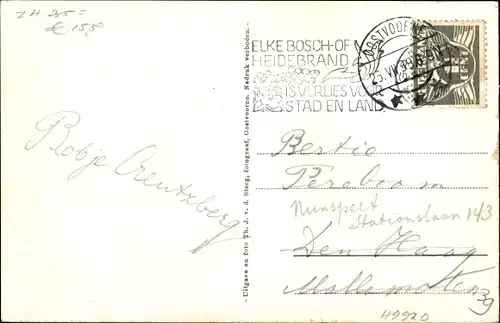 ZH 35=
€ 15,50
ELKE BOSCH- OF
HEIDEBRAND
IS VERLIES VOOR
STAD EN LAND
OOSTVOORNE
Robje Creutzberg
- Uitgave en foto Th. J. v. d. Sterg, fotograaf, Oostvoorne. Nadruk verboden. -
Bertie
Pereboom
Nunspeet
Stationslaan 143
Den Haag
39
49920